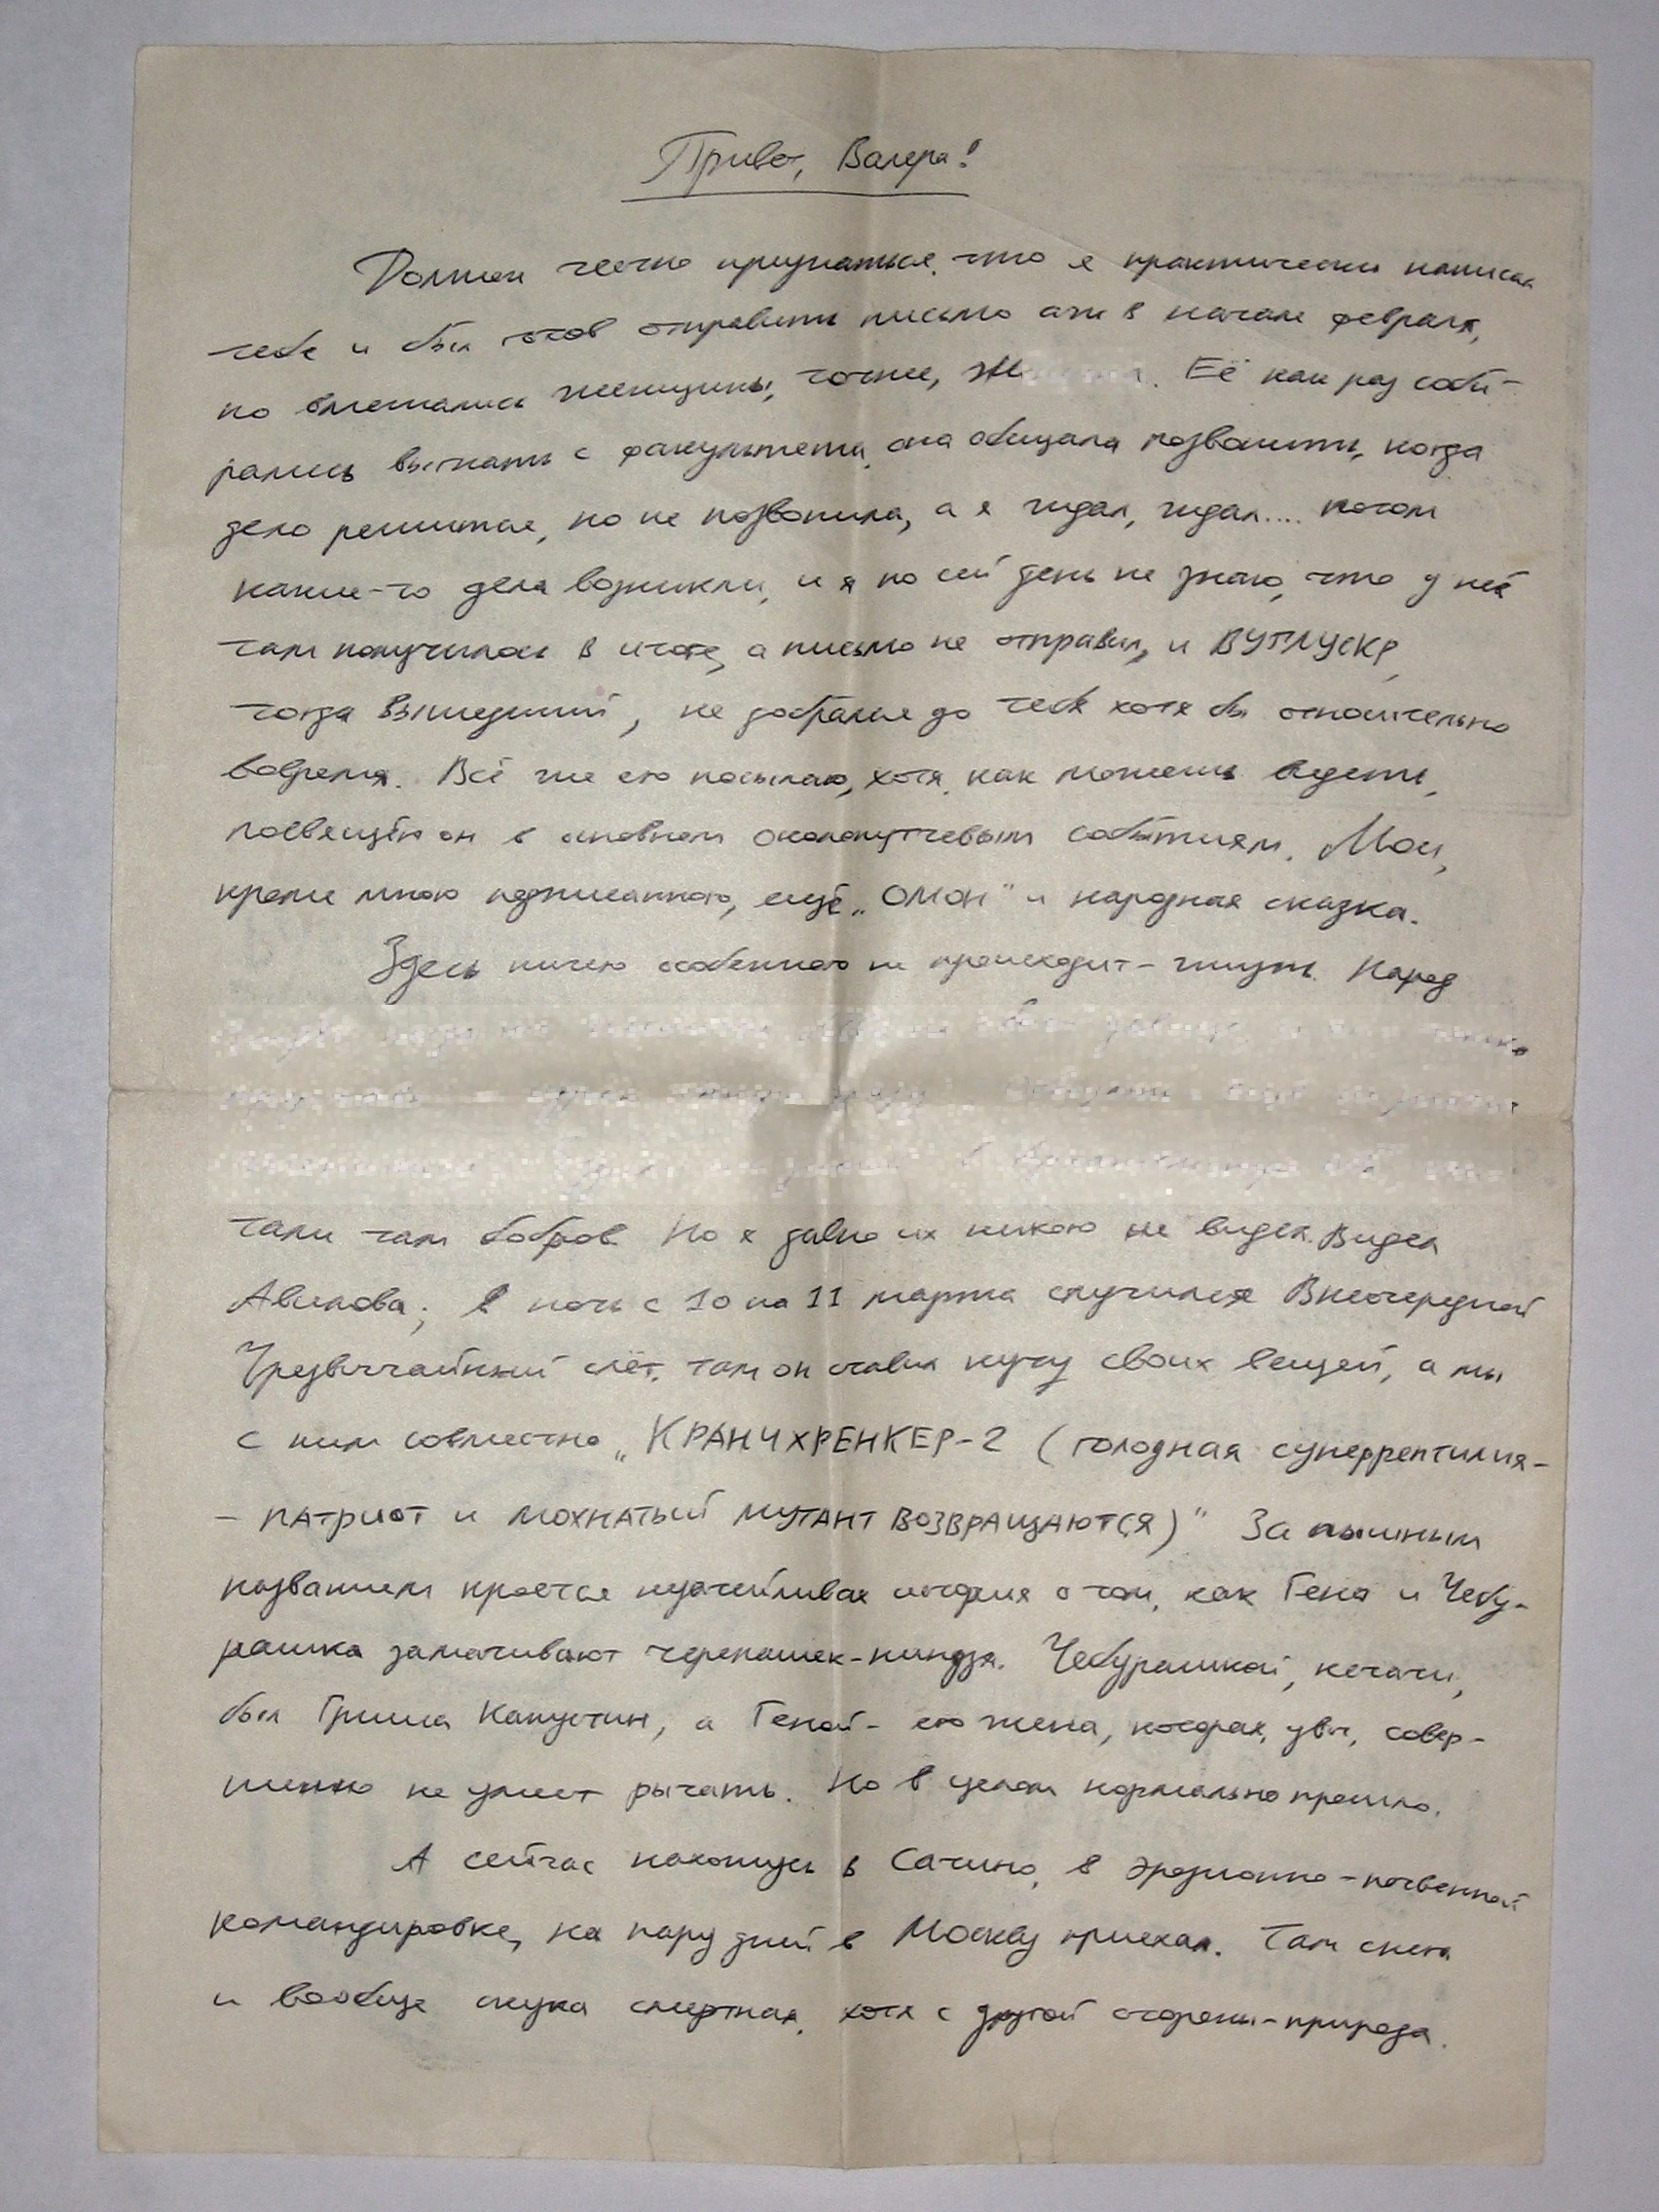 Привет, Валера!
Должен честно признаться, что я практически написал
тебе и был готов отправить письмо аж в начале февраля,
но вмешались женщины, точнее, Её как раз соби-
рались выгнать с факультета, она обещала позвонить, когда
дело решится, но не позвонила, а я ждал, ждал.... потом
какие-то дела возникли, и я по сей день не знаю, что у неё
там получилось в итоге, а письмо не отправил, и
тогда вышедший, не добрался до тебя хотя бы относительно
вовремя. Всё же его посылаю, хотя, как можешь видеть,
посвящён он в основном событиям. Мои,
кроме мною подписанного, ещё „ОМОН" и народная сказка.
Здесь ничего особенного не происходит - жизнь. Народ
тали там бобров. Но я давно их никого не видел. Видел
Авилова; в ночь с 10 на 11 марта случился Внеочередной
Чрезвычайный слёт, там он ставил кучу своих вещей, а мы
с ним совместно „КРАНЧХРЕНКЕР-2 (голодная суперрептилия-
- патриот и мохнатый мутант возвращаются)" За пышным
названием кроется незатейливая история о том, как Гена и Чебу-
рашка замачивают черепашек-ниндзя. Чебурашкой, кстати,
был Гриша Капустин, а Геной - его жена, которая, увы, совер-
шенно не умеет рычать. Но в целом нормально прошло.
А сейчас нахожусь в Сатино, в эрозионно-почвенной
командировке, на пару дней в Москву приехал. Там снега
и вообще скука смертная, хотя с другой стороны - природа.